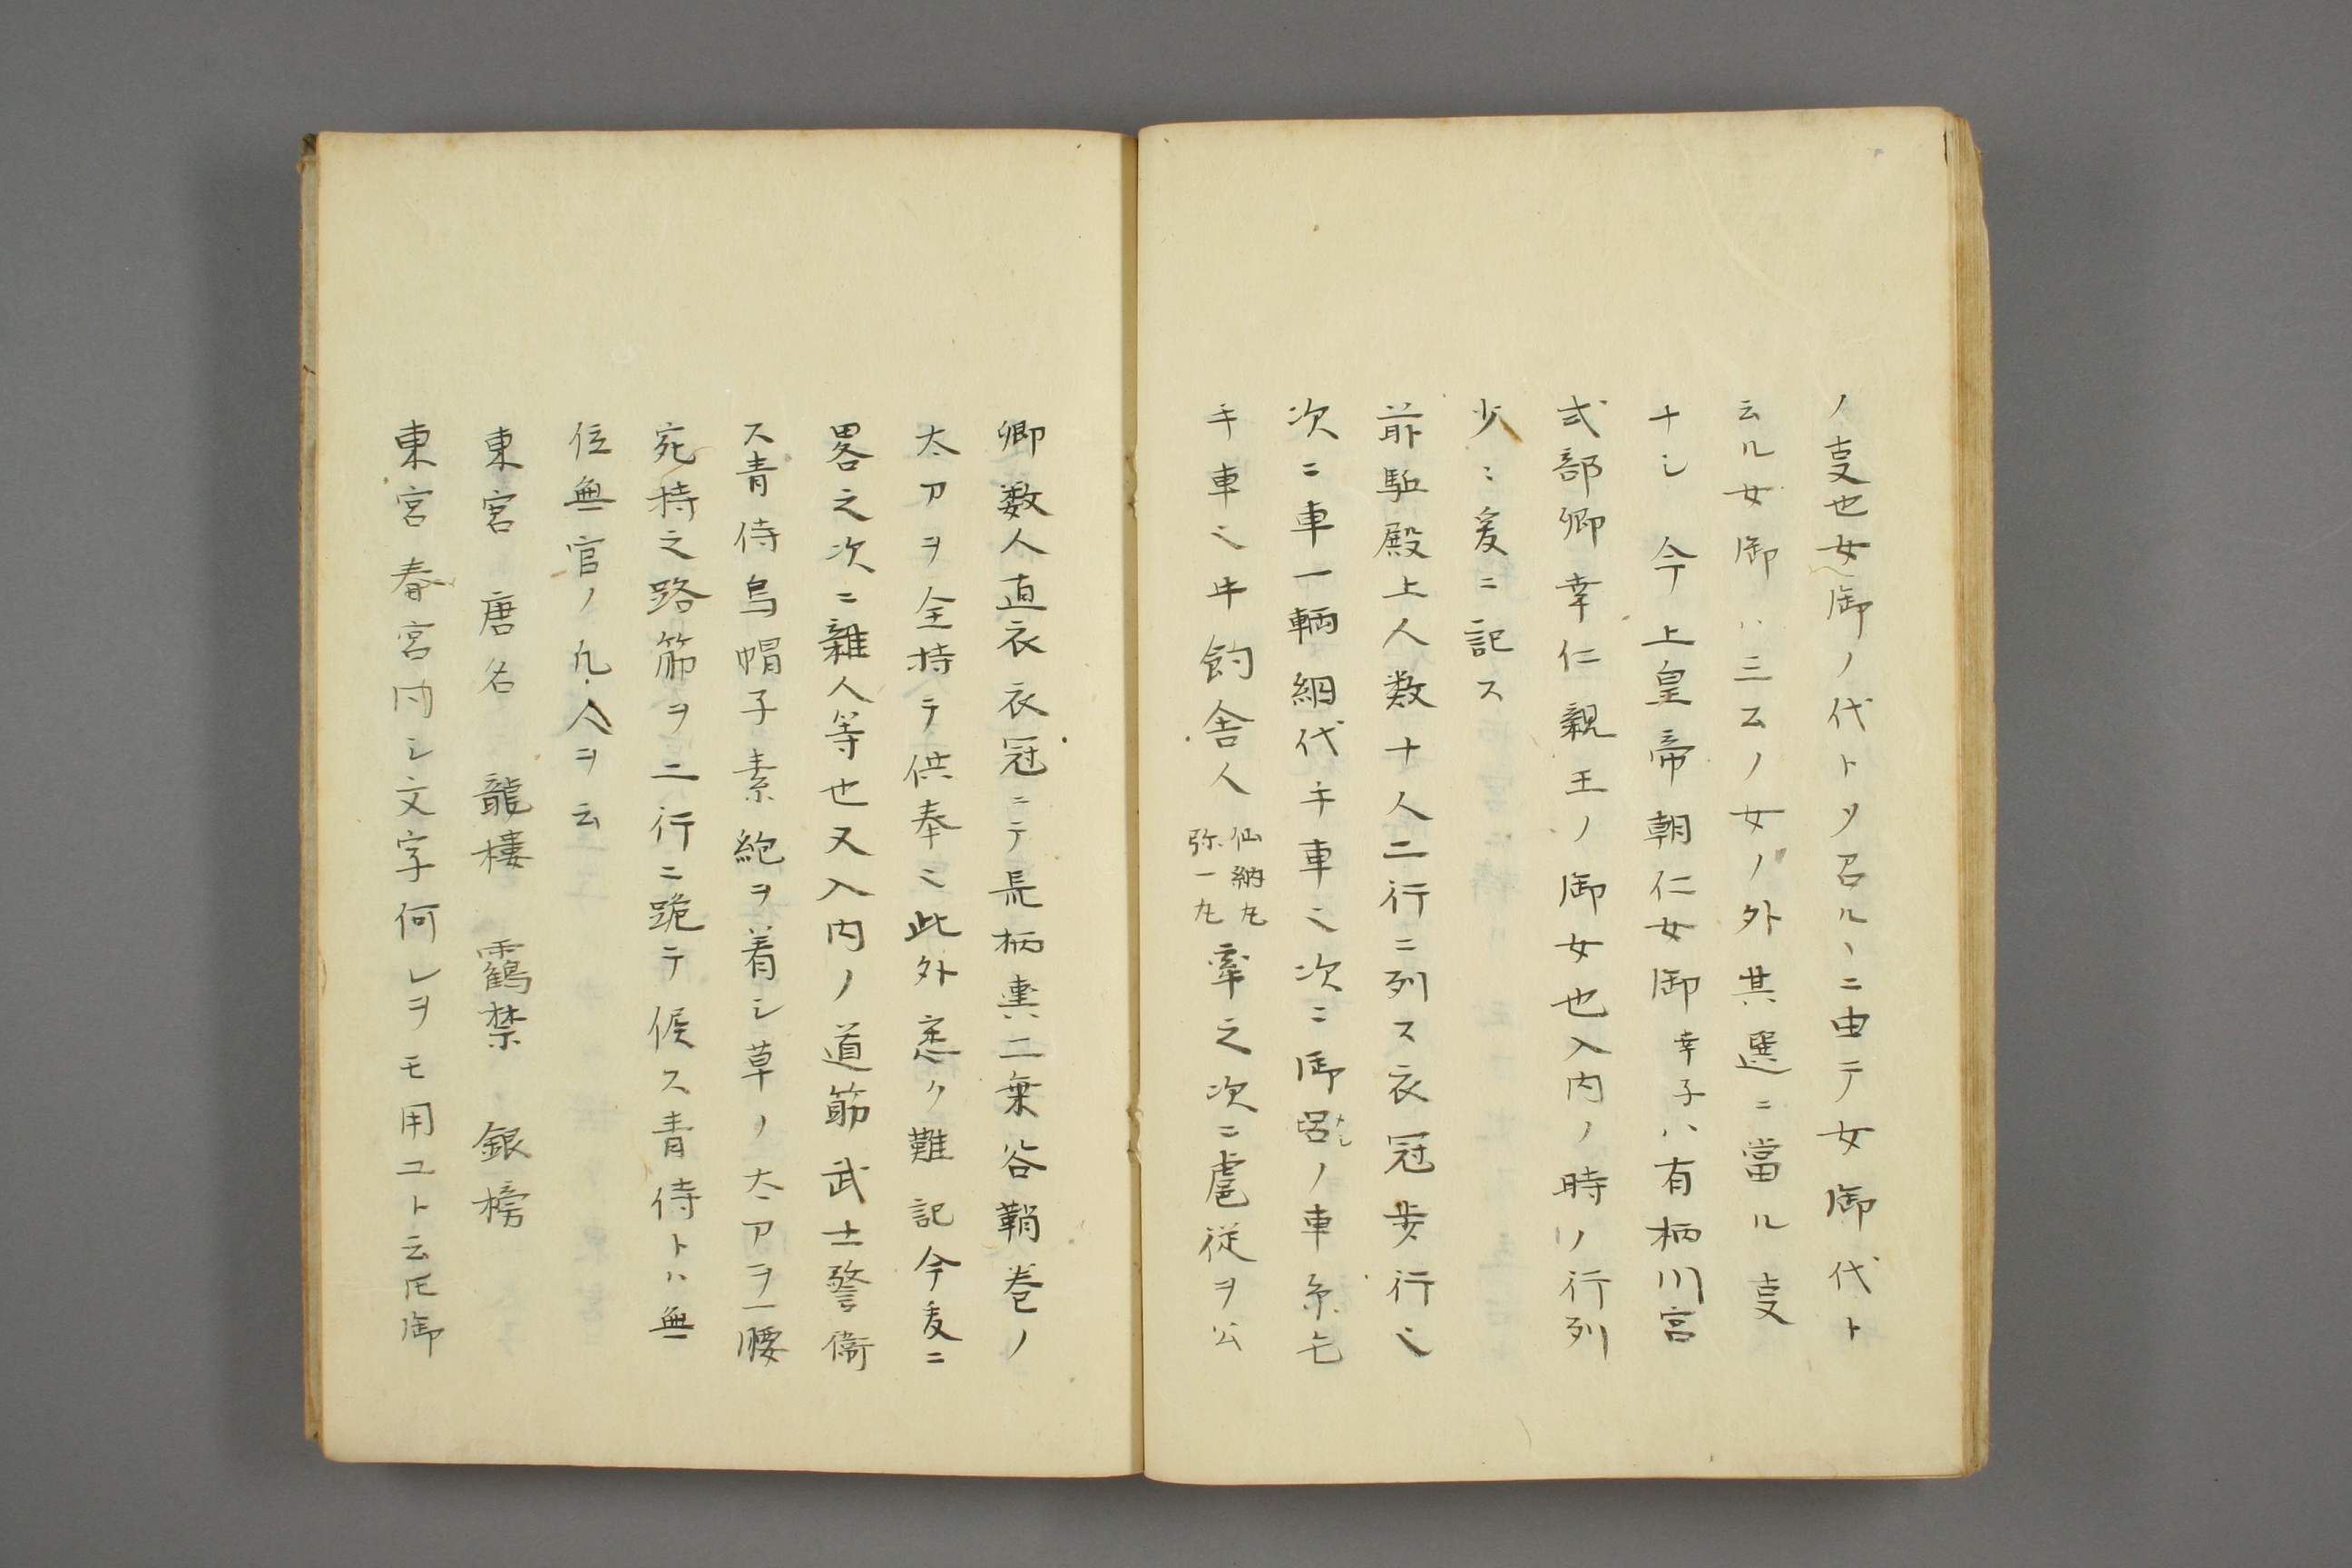 ノ叓也女御ノ代トソ召ルヽニ由テ女御代ト
云ル女御ハ三厶ノ女ノ外其選ニ當ル叓
ナシ　今上皇帝朝仁女御幸子ハ有栖川宮
式部卿幸仁親王ノ御女也入内ノ時ノ行列
少〻爰ニ記ス
前駈殿上人数十人二行ニ列ス衣冠歩行之
次ニ車一輌網代手車之次ニ御召メシノ車糸毛
手車之牛飼舎人仙納丸弥一丸牽之次ニ扈従ヲ公
卿数人直衣衣冠ニテ長柄輿二乗谷鞘巻ノ
太刀ヲ全持テ供奉之此外悉ク難記今爰ニ
畧之次ニ雜人等也又入内ノ道筋武士警衛
ス青侍烏帽子素絁ヲ着シ草ノ太刀ヲ一腰
宛持之路筋ヲ二行ニ跪テ候ス青侍トハ無
位無官ノ凢人ヲ云
東宮　唐名　龍樓　靏禁　銀榜
東宮春宮同シ文字何レヲモ用ユト云𪜈御